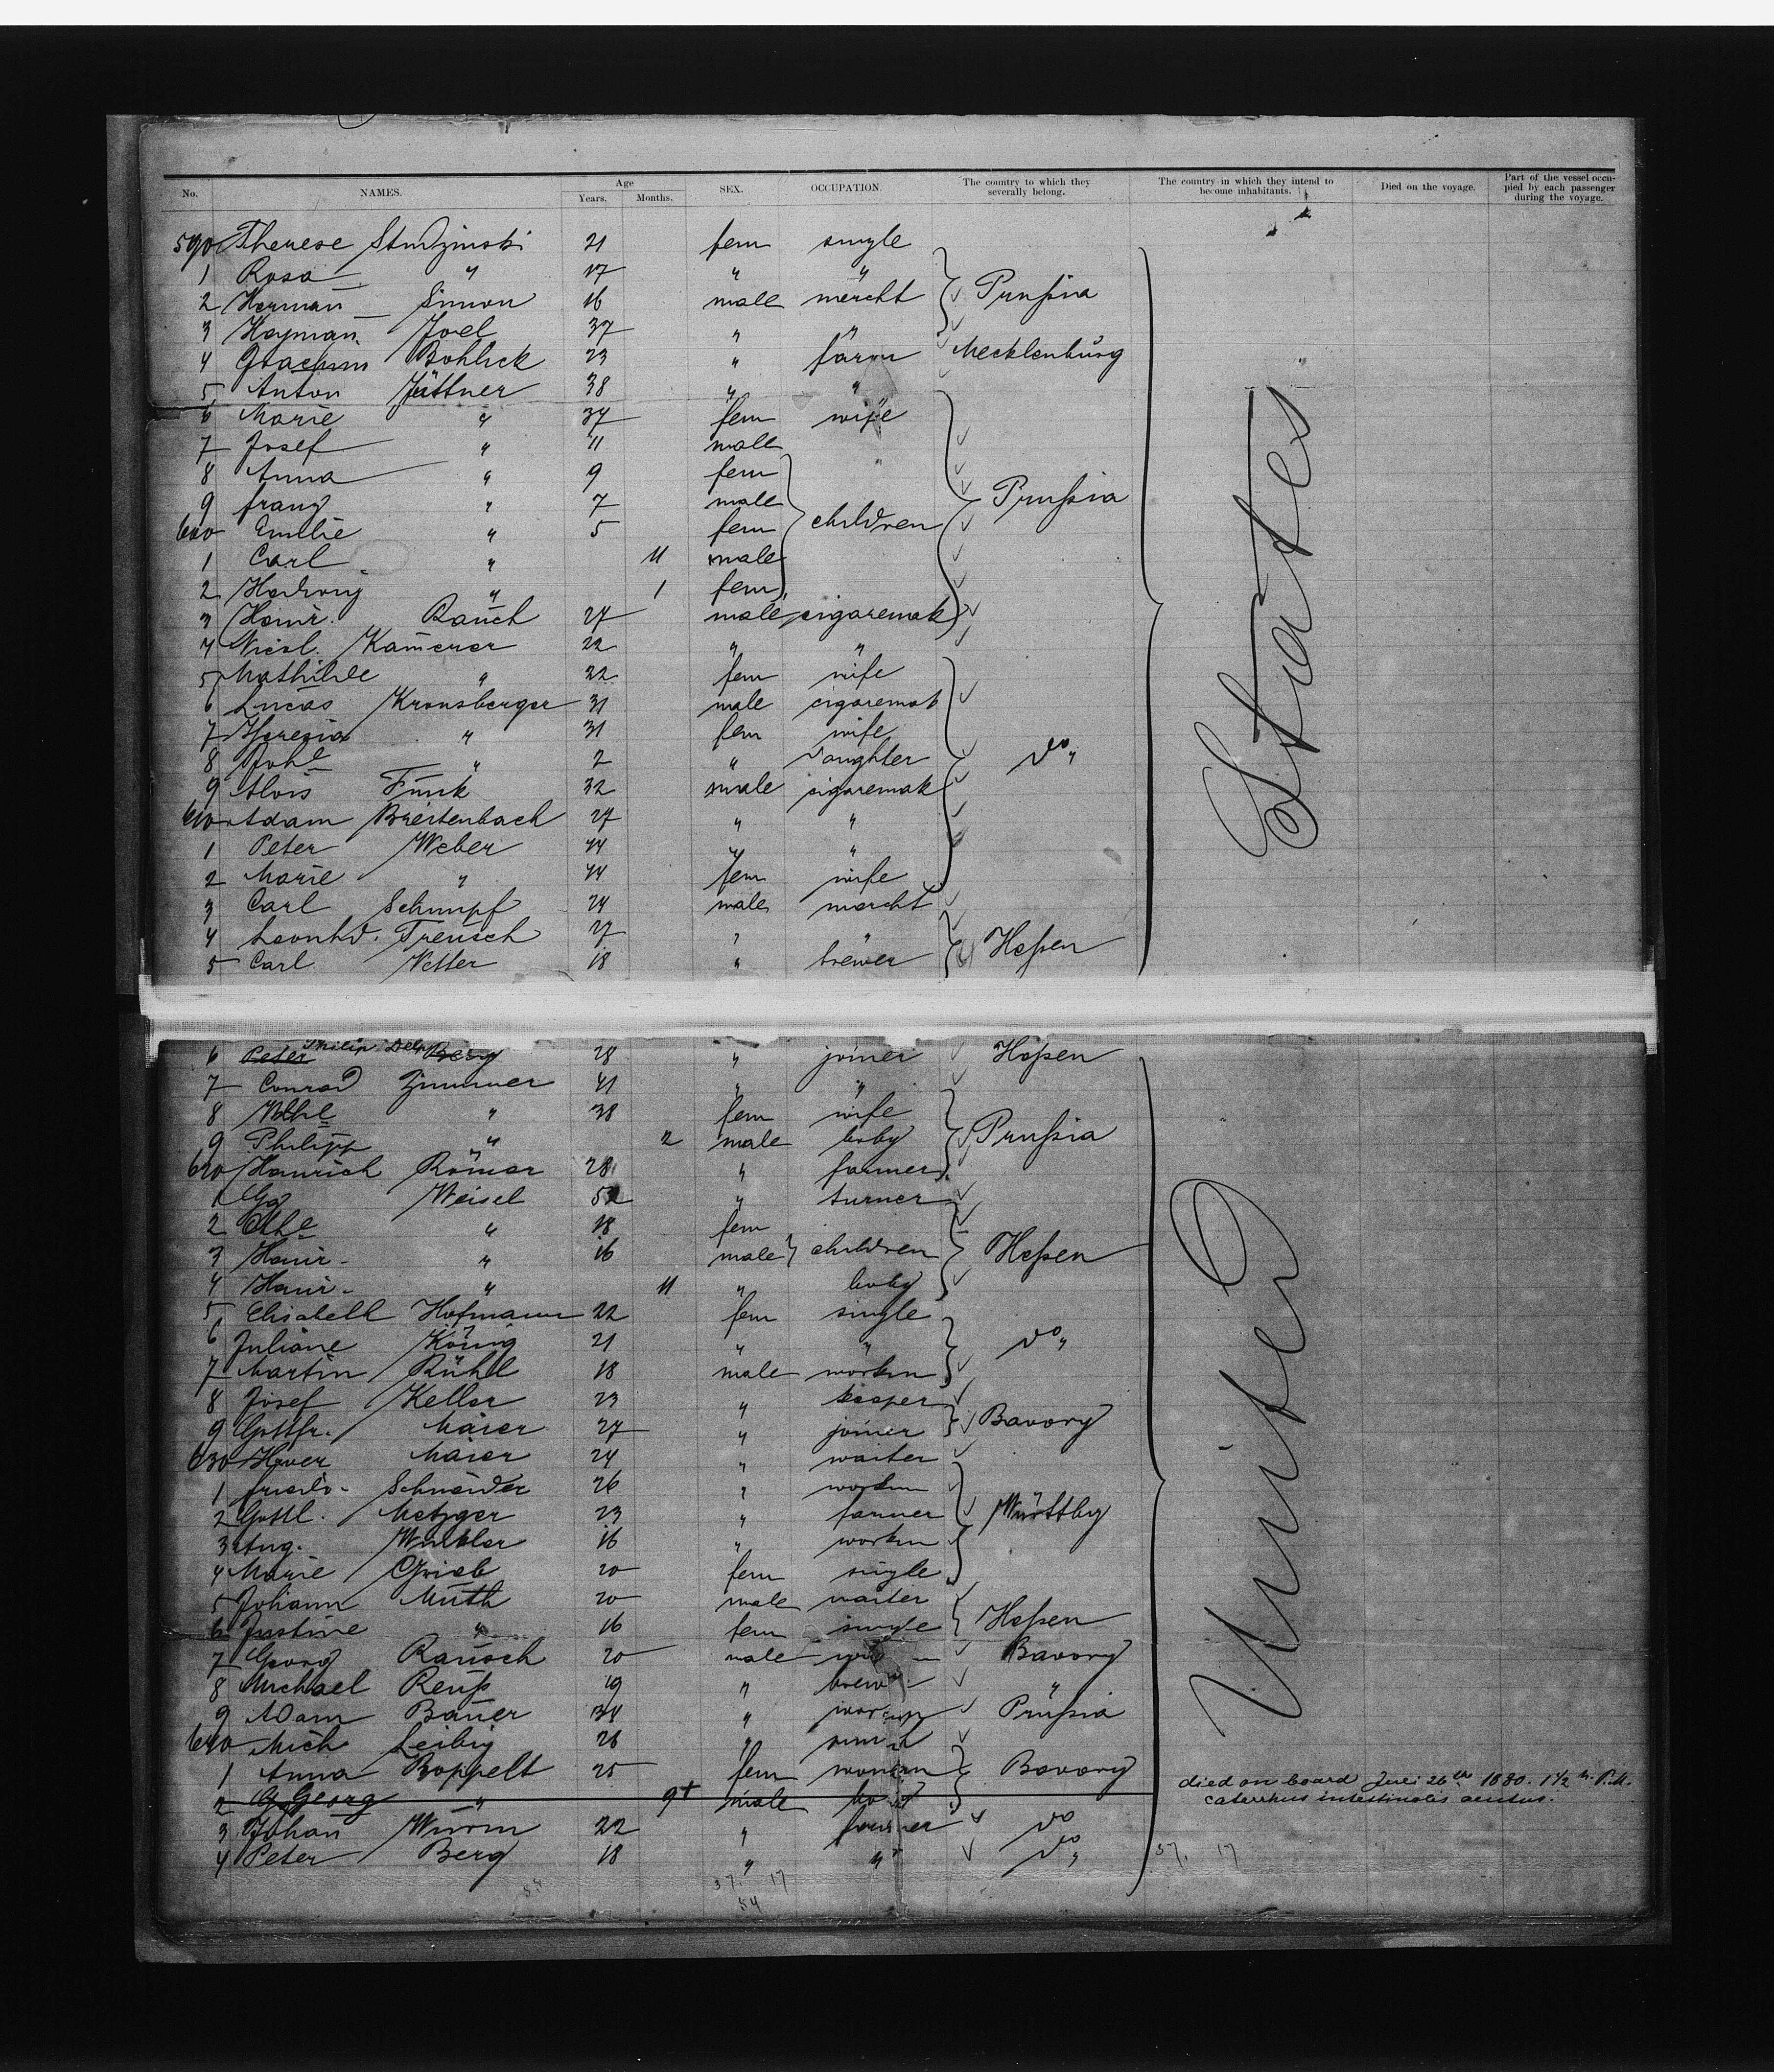 No. NAMES. Age Years. Months. SEX. OCCUPATION. The country to which they severally belong. The country in which they intend to become inhabitants. Died on the voyage. Part of the vessel occupied by each passenger during the voyage.
590 Therese Studzinski 21 fem single
1 Rosa " 17 " "
2 Herman Simon 16 male mercht Prußia
3 Heyman Joel 37 " "
4 Joachim Bohlick 23 " farm Mecklenburg
5 Anton Jüttner 38 " "
6 Marie " 37 fem wife
7 Josef " 11 male
8 Anna " 9 fem
9 Franz " 7 male Prußia
600 Emilie " 5 fem children
1 Carl " 11 male
2 Hedwig " 1 fem
3 Heinr. Rauch 27 male cigaremak
4 Nicol. Kamerer 22 " "
5 Mathilde " 22 fem wife
6 Lucas Kronsberger 31 male cigaremak
7 Theresia " 31 fem wife
8 " 2 " daughter do "
9 Alois Funk 32 male cigaremak
610 Adam Breitenbach 27 " "
1 Peter Weber 44 " "
2 Marie " 44 fem wife
3 Carl Schimpf 24 male mercht
4 Leonhd. Treusch 27 " " Heßen
5 Carl Vetter 18 " brewer
States
6 Peter Berg Philip Delp 28 " joiner Heßen
7 Conrad Zimmer 41 " "
8 Wilhe " 38 fem wife
9 Philipp " 2 male baby Prußia
620 Heinrich Römer 28 " farmer
1 Gg Weisel 52 " turner
2 " 18 fem
3 Heinr. " 16 male children Heßen
4 Heinr. " 11 " baby
5 Elisabeth Hofmann 22 fem single
6 Juliane König 21 " " do "
7 Martin Rühl 18 male workm
8 Josef Keller 23 " keeper
9 Gottfr. Maier 27 " joiner Bavory
630 Maier 24 " waiter
1 Friedr. Schneider 26 " workm
2 Gottl. Metzger 23 " farmer Württbg
3 Aug. Winkler 16 " workm
4 Marie Grieb 20 fem single
5 Johann Muth 20 male waiter
6 Justine " 16 fem single Heßen
7 Georg Rausch 20 male Bavory
8 Michael Reuß 19 " brew "
9 Adam Bauer 34 " Prußia
640 Mich Leibig 26 "
1 Anna Boppelt 25 fem Bavory
2 G Georg " 9+ male died on board Juli 26th 1880. 1 1/2 h. P.M.
catarrhus intestinalis acutus.
3 Johan Wurm 22 " farmer do
4 Peter Berg 18 " " do "
United
57. 17
37. 17
54
54